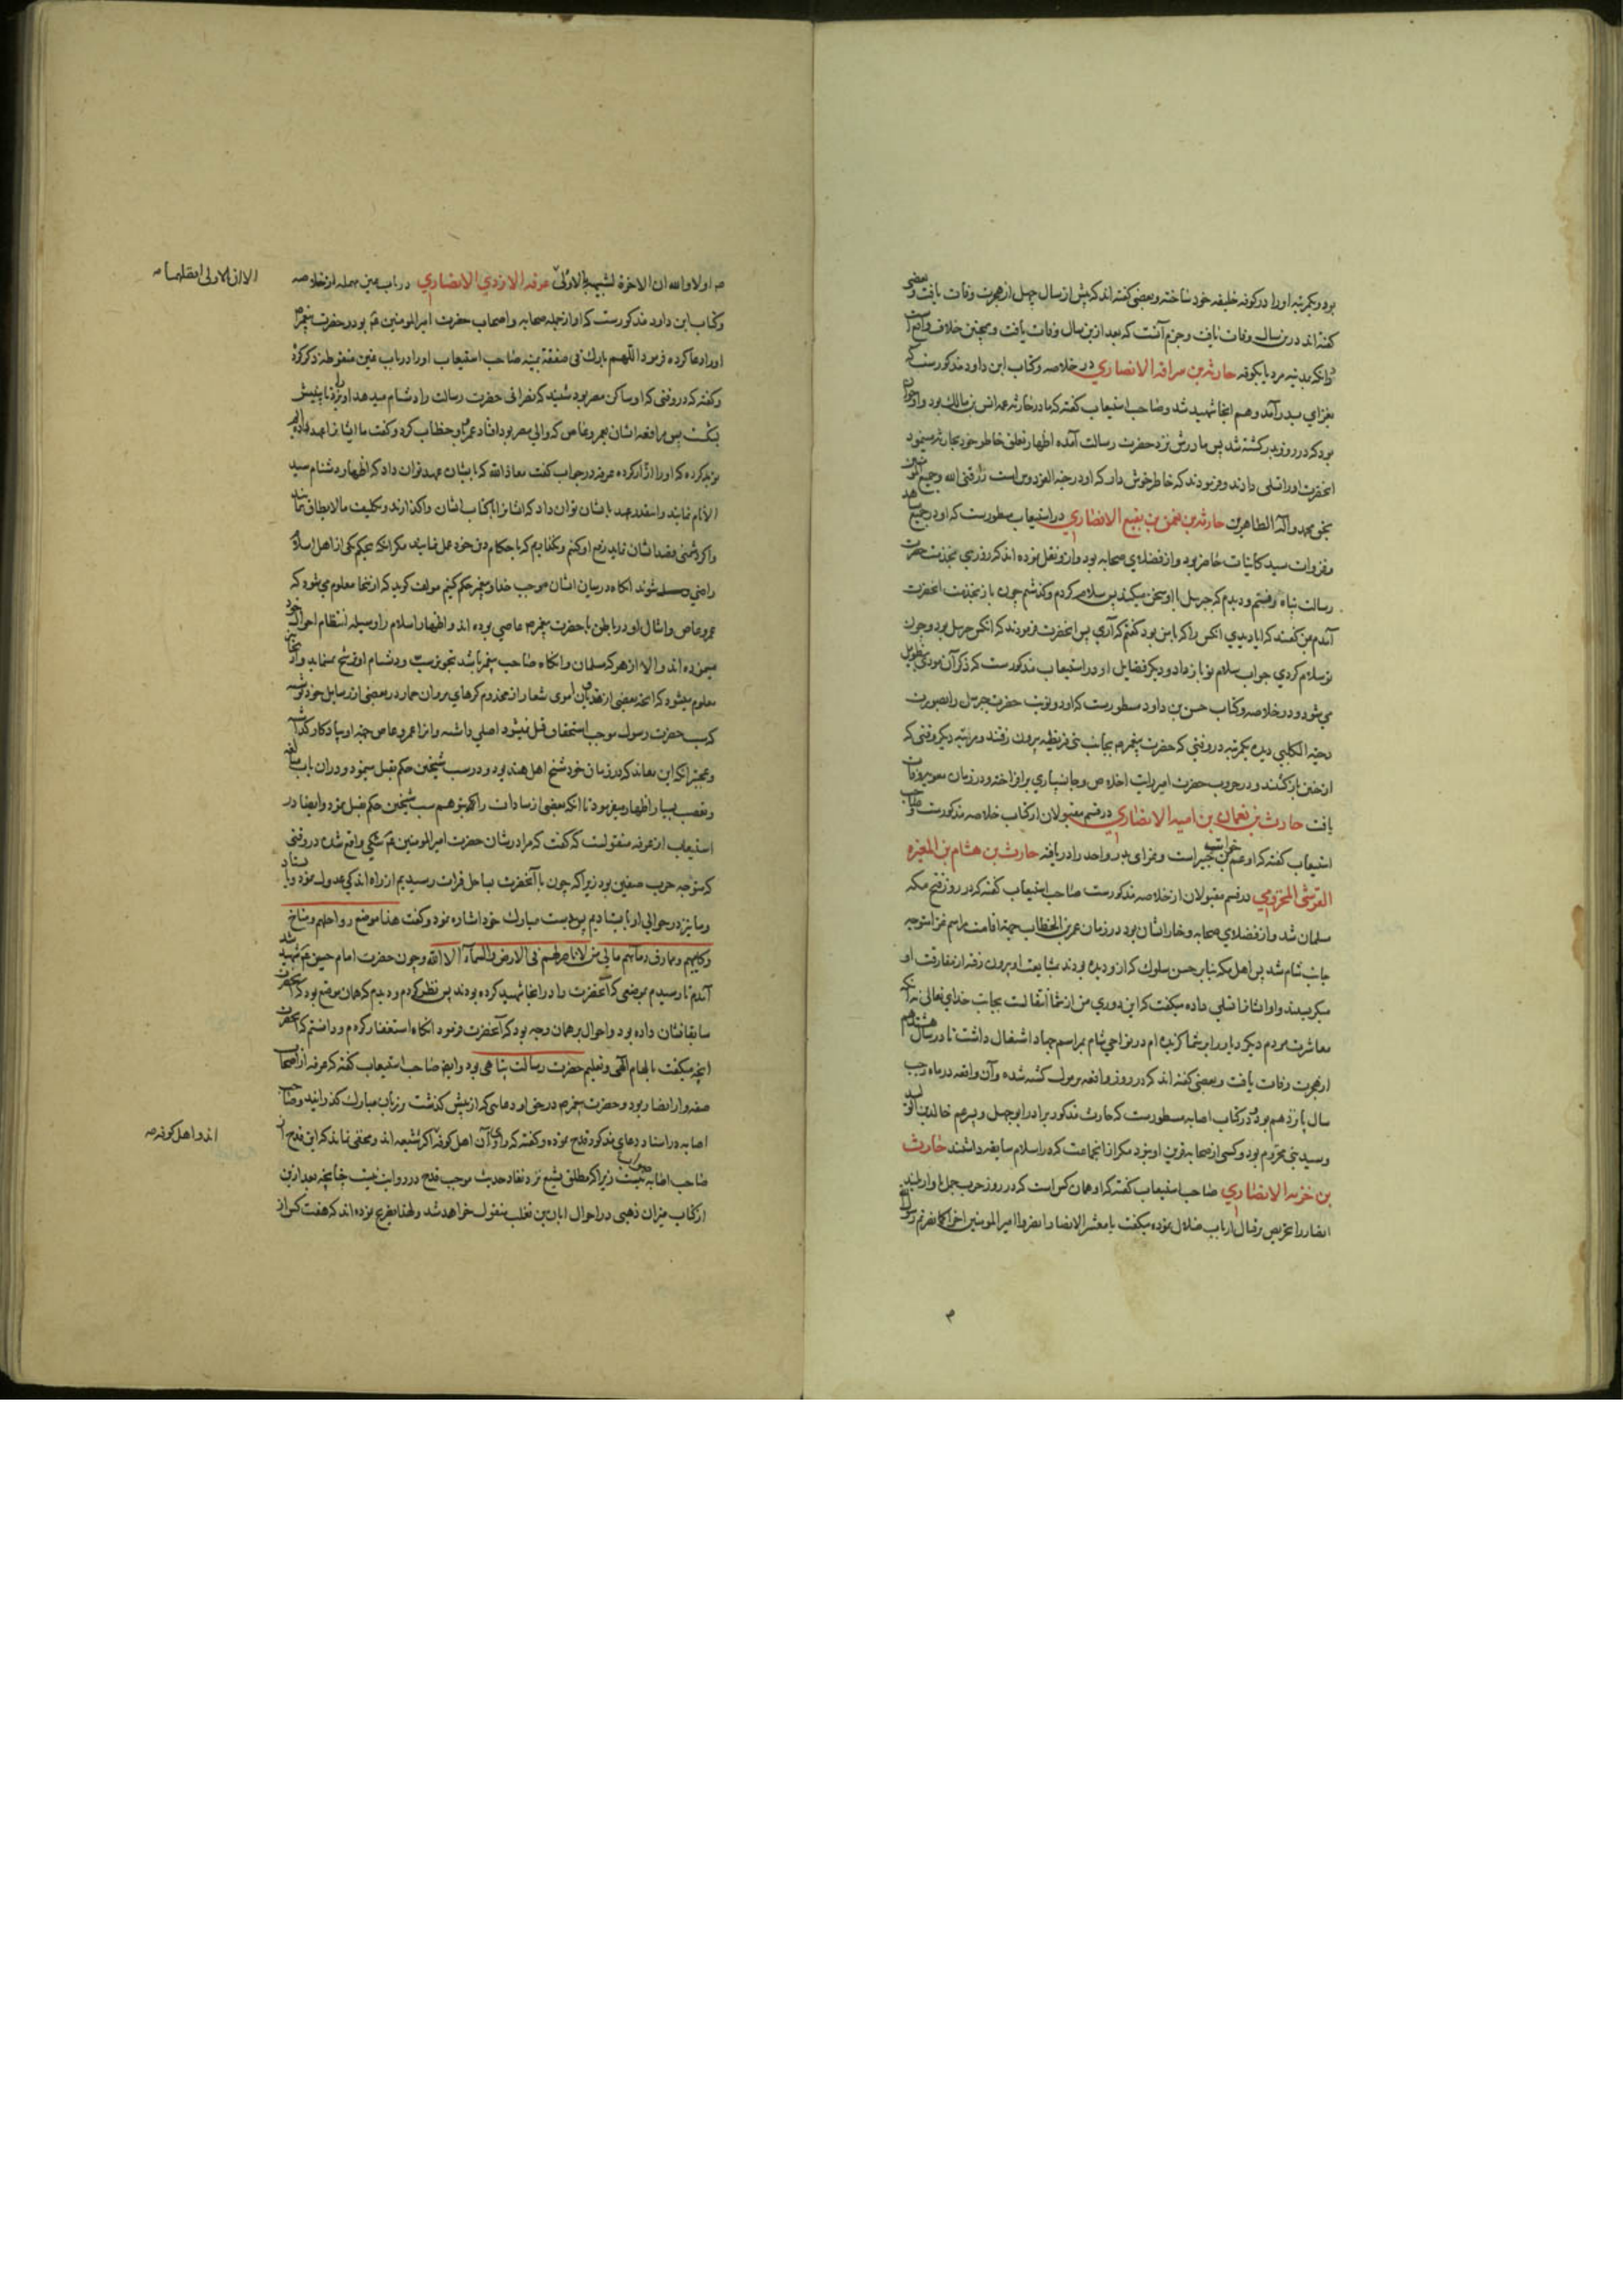 بود و یکمرتبه او را در کوفه خلیفه خود ساخته و بعضی گفته اند که پیش از سال چهل از هجرت وفات یافت و بعضی
گفته اند درین سال وفات یافت و جزم آنست که بعد ازین سال وفات یافت و همچنین خلاف
در آنکه بمدینه مرد یا بکوفه حارثه بن سراقه الانصاری در خلاصه و کتاب ابن داود مذکورست که
بغزای بدر آمد و هم آنجا شهید شد و صاحب استیعاب گفته که مادر حارثه عمه انس بن مالک بود و او
بود که در روز بدر کشته شد پس مادرش نزد حضرت رسالت آمده اظهار تعلق خاطر خود بحارثه مینمود
آنحضرت او را تسلی دادند و فرمودند که خاطر خوش دار که او در جنة الفردوس است رزقنی الله و جمیع المؤمنین
بحق محمد و آله الطاهرین حارثه بن نعمن بن نفیع الانصاری در استیعاب مسطورست که او در جمیع مشاهد
و غزوات سید کاینات حاضر بود و از فضلای صحابه بود و ازو نقل نموده اند که روزی بخدمت حضرت
رسالت پناه رفتم و دیدم که جبرئیل با او سخن میکند پس سلام کردم و گذشتم چون باز بخدمت آنحضرت
آمدم بمن گفتند که ایا دیدی آنکس را که با من بود گفتم که آری پس آنحضرت فرمودند که آنکس جبرئیل بود و چون
تو سلام کردی جواب سلام تو باز داد و دیگر فضایل او در استیعاب مذکورست که ذکر آن مودی بتطویل
می شود و در خلاصه و کتاب حسن بن داود مسطورست که او دو نوبت حضرت جبرئیل را بصورت
دحیة الکلبی دیده یکمرتبه در وقتی که حضرت پیغمبر م بجانب بنی قریظه بیرون رفتند و مرتبه دیگر وقتی که
از حنین بازگشتند و در حروب حضرت امیر رایت اخلاص و جانسپاری برافراخته و در زمان معویه وفات
یافت حارث بن نعمان بن امیه الانصاری در قسم مقبولان از کتاب خلاصه مذکورست و صاحب
استیعاب گفته که او عم خوات بن جبیر است و غزای بدر و احد را دریافته حارث بن هشام بن المغیره
القرشی المخزومی در قسم مقبولان از خلاصه مذکورست صاحب استیعاب گفته که در روز فتح مکه
مسلمان شد و از فضلای صحابه و خیار ایشان بود در زمان عمر بن الخطاب جهة اقامت مراسم غزا متوجه
جانب شام شد پس اهل مکه بنابر حسن سلوک که ازو دیده بودند بمشایعت او بیرون رفته از مفارقت او
میگریستند و او ایشانرا تسلی داده میگفت که این دوری من از شما انتقالست بجانب خدای تعالی نه آنکه
معاشرت مردم دیگر دیار را بر شما گزیده ام در نواحی شام بمراسم جهاد اشتغال داشت تا در سال هشتدهم
از هجرت وفات یافت و بعضی گفته اند که در روز واقعه یرموک کشته شده و آن واقعه در ماه رجب
سال پانزدهم بود و در کتاب اصابه مسطورست که حارث مذکور برادر ابوجهل و پسر عم خالد بن الولید
و سید بنی مخزوم بود و کسی از صحابه قرین او نبود مگر از آنجماعت که در اسلام سابقه داشتند حارث
بن خزمه الانصاری صاحب استیعاب گفته که او همان کس است که در روز حرب جمل
انصار را تحریص بر قتال ارباب ضلال نموده میگفت یا معشر الانصار انصروا امیر المومنین اخرا کما نصرتم رسول الله
م
اولا و الله ان الاخرة لشبیهة بالاولی عرفه الازدی الانصاری در باب عین مهمله از خلاصه
الا ان الاولی افضلهما
و کتاب ابن داود مذکورست که او از جمله صحابه و اصحاب حضرت امیر المومنین ع بود و حضرت پیغمبر م
او را دعا کرده فرمود اللهم بارک فی صفقة یمینه صاحب استیعاب او را در باب غین منقوطه ذکر کرده
و گفته که در وقتی که او ساکن مصر بود شنید که نصرانی حضرت رسالت را دشنام میدهد
بکشت پس مرافعه ایشان بعمرو عاص که والی مصر بود افتاد عمرو باو خطاب کرد و گفت ما ایشانرا عهد داده
که او را ... عرفه در جواب گفت معاذ الله که بایشان عهد توان داد که اظهار دشنام سید
الانام نمایند و اینقدر عهد بایشان توان داد که ایشانرا با کتاب ایشان واگذارند و تکلیف ما لا یطاق
و اگر دشمنی قصد ایشان نماید رفع او کنم و بگذاریم که باحکام دین خود عمل نمایند مگر آنکه بحکم یکی از اهل اسلام
راضی شوند آنگاه در میان ایشان بموجب خدا و پیغمبر حکم کنیم مولف گوید که از اینجا معلوم می شود که
عمرو عاص و امثال او در باطن با حضرت پیغمبر م عاصی بوده اند و اظهار اسلام را وسیله انتظام احوال خود
مینموده اند و الا از هر که مسلمان و آنگاه صاحب پیغمبر باشد تجویز سب و دشنام او قبیح
معلوم میشود که آنچه بعضی از ... اموی شعار ... در بعضی از رسایل خود نوشته
که سب حضرت رسول موجب استحقاق قتل نمیشود اصلی داشته
و عجبتر آنکه این معاند که در زمان خود شیخ اهل هند بود و در سب شیخین حکم بقتل مینمود و در آن باب مبالغه
و تعصب بسیار اظهار میفرمود تا آنکه بعضی از سادات را بتوهم سب شیخین حکم بقتل نمود و ایضا در
استیعاب از عرفه منقولست که گفت که مرا در شان حضرت امیر المومنین ع شکی واقع شد در وقتی
که متوجه حرب صفین بود زیرا که چون با آنحضرت بساحل فرات رسیدیم از راه اندکی عدول نمود و بایستاد
و ما نیز در حوالی او بایستادیم پس بدست مبارک خود اشاره نمود و گفت هذا موضع رواحلهم و مناخ
رکابهم و مهراق دمائهم بابی من لا ناصر لهم فی الارض و السماء الا الله و چون حضرت امام حسین ع شهید شد
آمدم تا رسیدم بموضعی که آنحضرت را در آنجا شهید کرده بودند پس نظر کردم و دیدم که همان موضع بود که آنحضرت
سابقا نشان داده بود و احوال بر همان وجه بود که آنحضرت فرمود آنگاه استغفار کردم و دانستم که آنحضرت
آنچه میگفت بالهام الهی و تعلیم حضرت رسالت پناهی بود و ایضا صاحب استیعاب گفته که عرفه از اصحاب
صفه و از انصار بود و حضرت پیغمبر م در حق او دعایی که از پیش گذشت بر زبان مبارک گذرانید و صاحب
اصابه در اسناد دعای مذکور قدح نموده و گفته که راوی آن اهل کوفه اکثر شیعه اند و مخفی نماند که این قدح از
اند و اهل کوفه
صاحب اصابه نیست زیرا که مطلق تشیع نزد نقاد حدیث موجب قدح در روایت نیست چنانچه بعد ازین
از کتاب میزان ذهبی در احوال ابان بن تغلب منقول خواهد شد